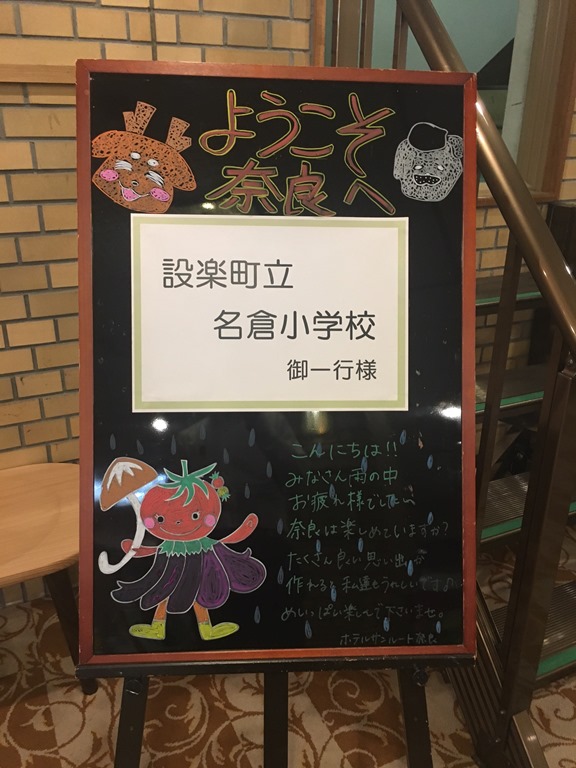 ようこそ
奈良へ
設楽町立
名倉小学校
御一行様
こんにちは!!
みなさん雨の中
お疲れ様でした
奈良は楽しめていますか?
たくさん良い思い出
作れると私達もうれしいです♪
めいっぱい楽しんで下さいませ。
ホテルサンルート奈良